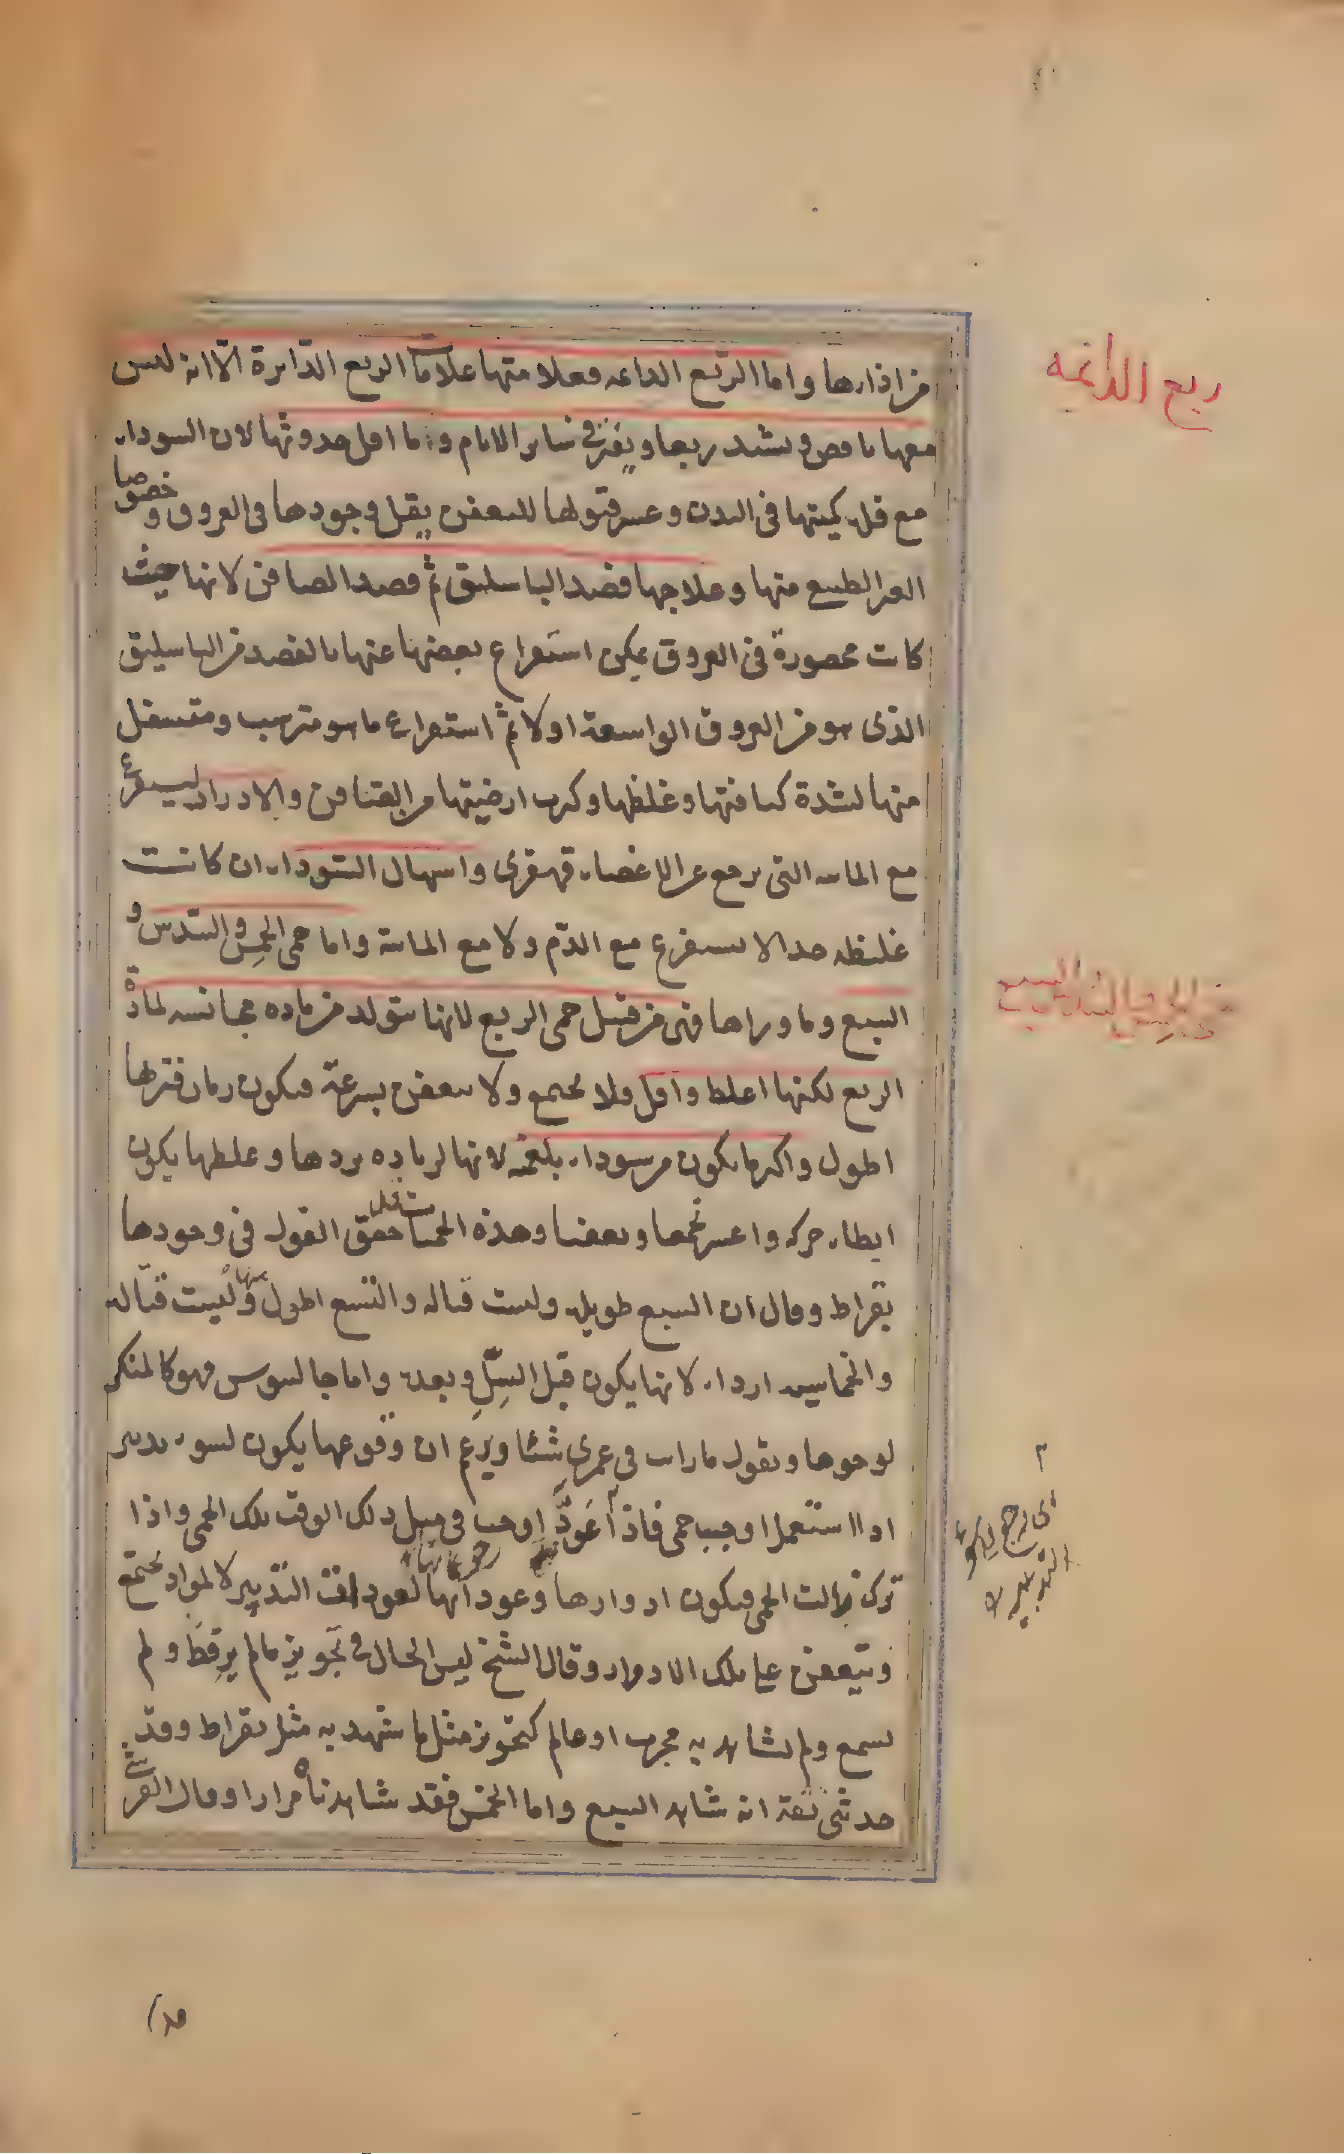 من اذارها واما الربع الدائمه فعلامتها علامات الربع الدّايرة الّا انه ليس
معها نافض ويشتد ربعا ويفتر في ساير الايام وانما اقل حدوثها لان السوداء
مع قلة كميتها في البدن وعسر قبولها للتعفن يقل وجودها في العروق وخصوصا
الغير الطبيعي منها وعلاجها فصد الباسليق ثم فصد الصافن لانها حيث
كانت محصورة في العروق يمكن استفراغ بعضها عنها بالفصد من الباسليق
الذي هو من العروق الواسعة اولا ثم استفراغ ما هو مترسب ومتسفل
منها لشدة كثافتها وغلظها وكثرة ارضيتها من الصافن والادرار ليستفرغ
مع المائية التي ترجع عن الاعضاء قهقرى واسهال السّوداء ان كانت
غليظه حدا لا يستفرغ مع الدّم ولا مع المائية واما حمى الخِمس والسّدس و
السبع وما وراها فهي من قبيل حمى الربع لانها تتولد من ماده مجانسه لمادّة
الربع لكنها اغلظ واقل فلا تجتمع ولا تتعفن بسرعة فيكون زمان فترتها
اطول واكثر ما يكون من سوداء بلغميه لانها لزياده بردها وغلظها يكون
ابطاء حركه واعسر تجمعا وتعفنا وهذه الحميات قد حقق القول في وجودها
بقراط وقال ان السبع طويله وليست قتاله والتسع اطول منها وليست قتّاله
والخماسيه ارداء لانها يكون قبل السِّلّ وبعده واما جالينوس فهو كالمنكر
لوجودها ويقول ما رايت في عمري شئا ويزعم ان وقوعها يكون لسوء تدبير
اذا استعمل اوجب حمى فاذا عوّد اوجب في مثل ذلك الوقت تلك الحمى واذا
ترك زالت الحمى فيكون ادوارها وعوداتها لعودات التدبير لا لمواد تجتمع
وتتعفن على تلك الادوار وقال الشيخ ليس الحال في تجويز ما لم ير قط ولم
يسمع ولم يشاهد به مجرب او عالم كتجويز مثل ما شهد به مثل بقراط وقد
حدثني ثقة انه شاهد السبع واما الخمس فقد شاهدناه مرارا وقال القرشي
ربع الدائمه
حمى الخمس والسدس والسبع